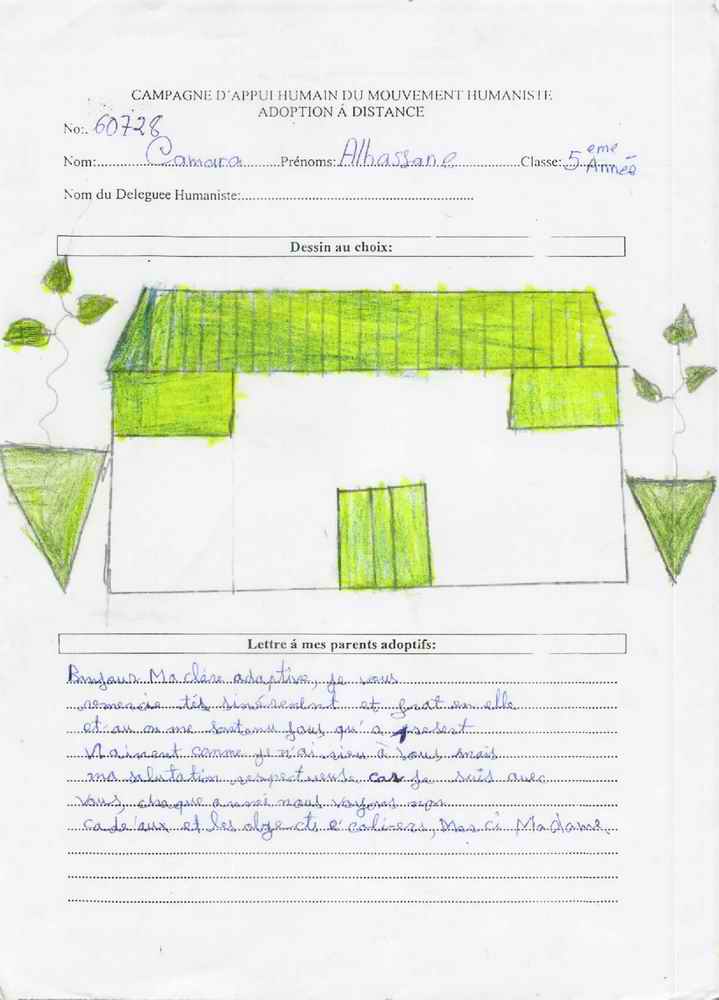 CAMPAGNE D'APPUI HUMAIN DU MOUVEMENT HUMANISTE
ADOPTION Á DISTANCE
No:. 60728
Nom: Camara Prénoms: Alhassane Classe: 5 eme Année
Nom du Deleguee Humaniste:
Dessin au choix:
Lettre á mes parents adoptifs:
Bonjour Ma adaptive, je vous
remercie tés et
et au on me qu'a presert
comme je n'ai rien à vous mais
ma salutation respectueuse car je suis avec
vous, chaque année nous voyons
cade'aux et les objects e'coliers, Mer ci Madame.